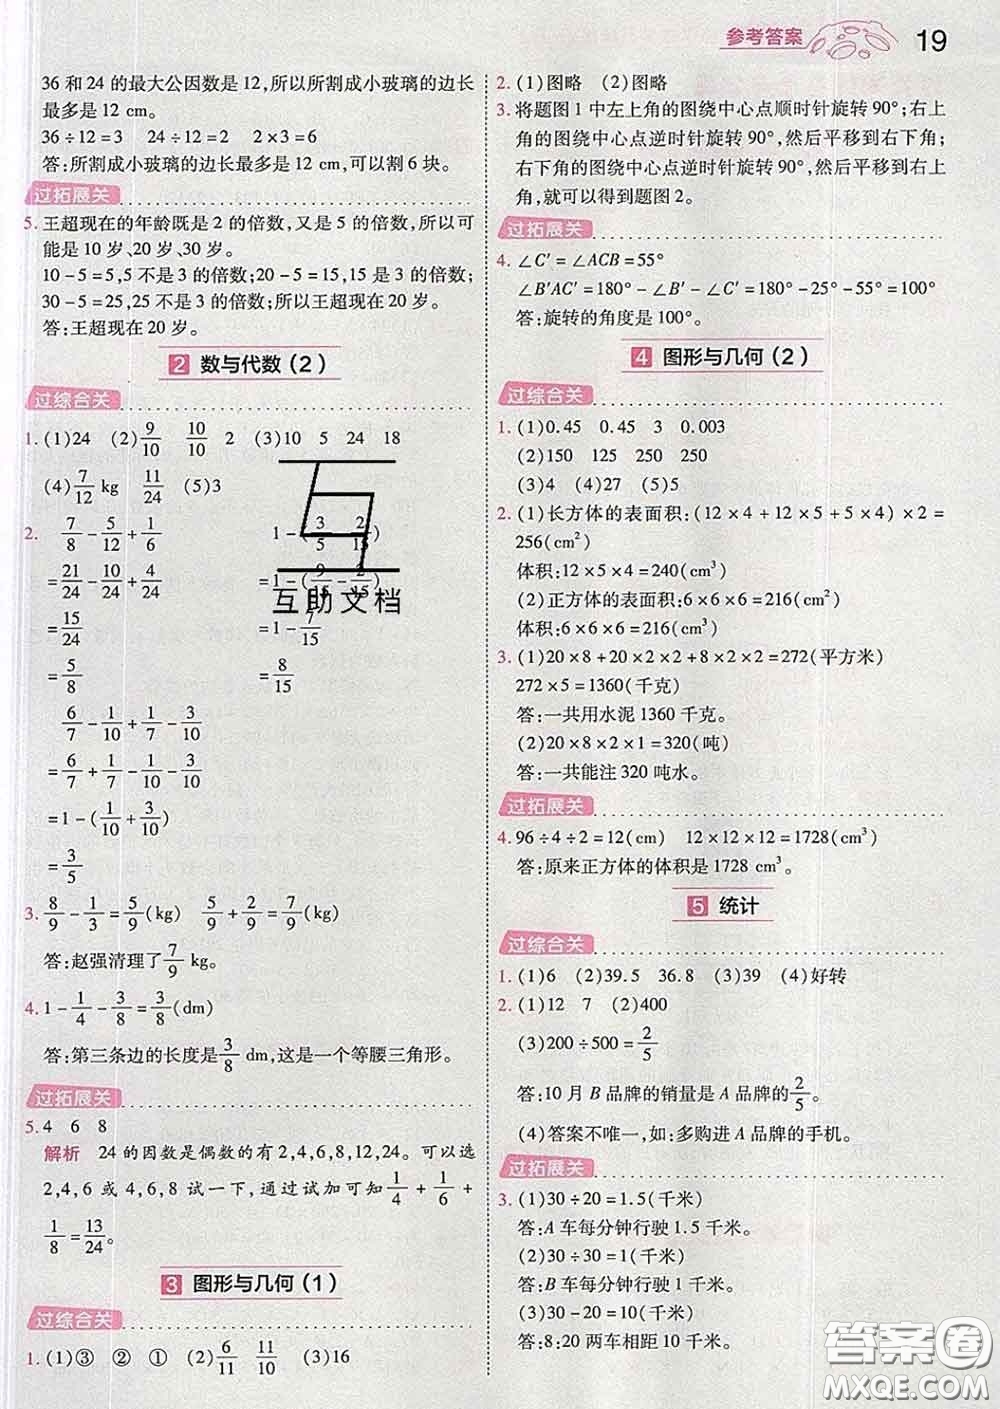 参考答案 19
36 和 24 的最大公因数是 12,所以所割成小玻璃的边长
最多是 12 cm。
36÷12=3 24÷12=2 2×3=6
答:所割成小玻璃的边长最多是 12 cm,可以割 6 块。
过拓展关
5. 王超现在的年龄既是 2 的倍数,又是 5 的倍数,所以可
能是 10 岁、20 岁、30 岁。
10-5=5,5 不是 3 的倍数;20-5=15,15 是 3 的倍数;
30-5=25,25 不是 3 的倍数;所以王超现在 20 岁。
答:王超现在 20 岁。
2 数与代数(2)
过综合关
1. (1)24 (2)9/10 10/10 2 (3)10 5 24 18
(4)7/12 kg 11/24 (5)3
2. 7/8-5/12+1/6 1-(3/5-2/15)
=21/24-10/24+4/24 =1-(9/15-2/15)
=15/24 =1-7/15
=5/8 =8/15
6/7-1/10+1/7-3/10
=6/7+1/7-1/10-3/10
=1-(1/10+3/10)
=3/5
3. 8/9-1/3=5/9(kg) 5/9+2/9=7/9(kg)
答:赵强清理了7/9 kg。
4. 1-1/4-3/8=3/8(dm)
答:第三条边的长度是3/8 dm,这是一个等腰三角形。
过拓展关
5. 4 6 8
解析 24 的因数是偶数的有 2,4,6,8,12,24。可以选
2,4,6 或 4,6,8 试一下,通过试加可知1/4+1/6+
1/8=13/24。
3 图形与几何(1)
过综合关
1. (1)③ ② ① (2)6/11 11/10 (3)16
2. (1)图略 (2)图略
3. 将题图 1 中左上角的图绕中心点顺时针旋转 90°;右上
角的图绕中心点逆时针旋转 90°,然后平移到右下角;
右下角的图绕中心点逆时针旋转 90°,然后平移到右上
角,就可以得到题图 2。
过拓展关
4. ∠C′=∠ACB=55°
∠B′AC′=180°-∠B′-∠C′=180°-25°-55°=100°
答:旋转的角度是 100°。
4 图形与几何(2)
过综合关
1. (1)0.45 0.45 3 0.003
(2)150 125 250 250
(3)4 (4)27 (5)5
2. (1)长方体的表面积:(12×4+12×5+5×4)×2=
256(cm²)
体积:12×5×4=240(cm³)
(2)正方体的表面积:6×6×6=216(cm²)
体积:6×6×6=216(cm³)
3. (1)20×8+20×2×2+8×2×2=272(平方米)
272×5=1360(千克)
答:一共用水泥 1360 千克。
(2)20×8×2×1=320(吨)
答:一共能注 320 吨水。
过拓展关
4. 96÷4÷2=12(cm) 12×12×12=1728(cm³)
答:原来正方体的体积是 1728 cm³。
5 统计
过综合关
1. (1)6 (2)39.5 36.8 (3)39 (4)好转
2. (1)12 7 (2)400
(3)200÷500=2/5
答:10 月 B 品牌的销量是 A 品牌的2/5。
(4)答案不唯一,如:多购进 A 品牌的手机。
过拓展关
3. (1)30÷20=1.5(千米)
答:A 车每分钟行驶 1.5 千米。
(2)30÷30=1(千米)
答:B 车每分钟行驶 1 千米。
(3)30-20=10(千米)
答:8:20 两车相距 10 千米。
互助文档
答案圈
MXQE.COM